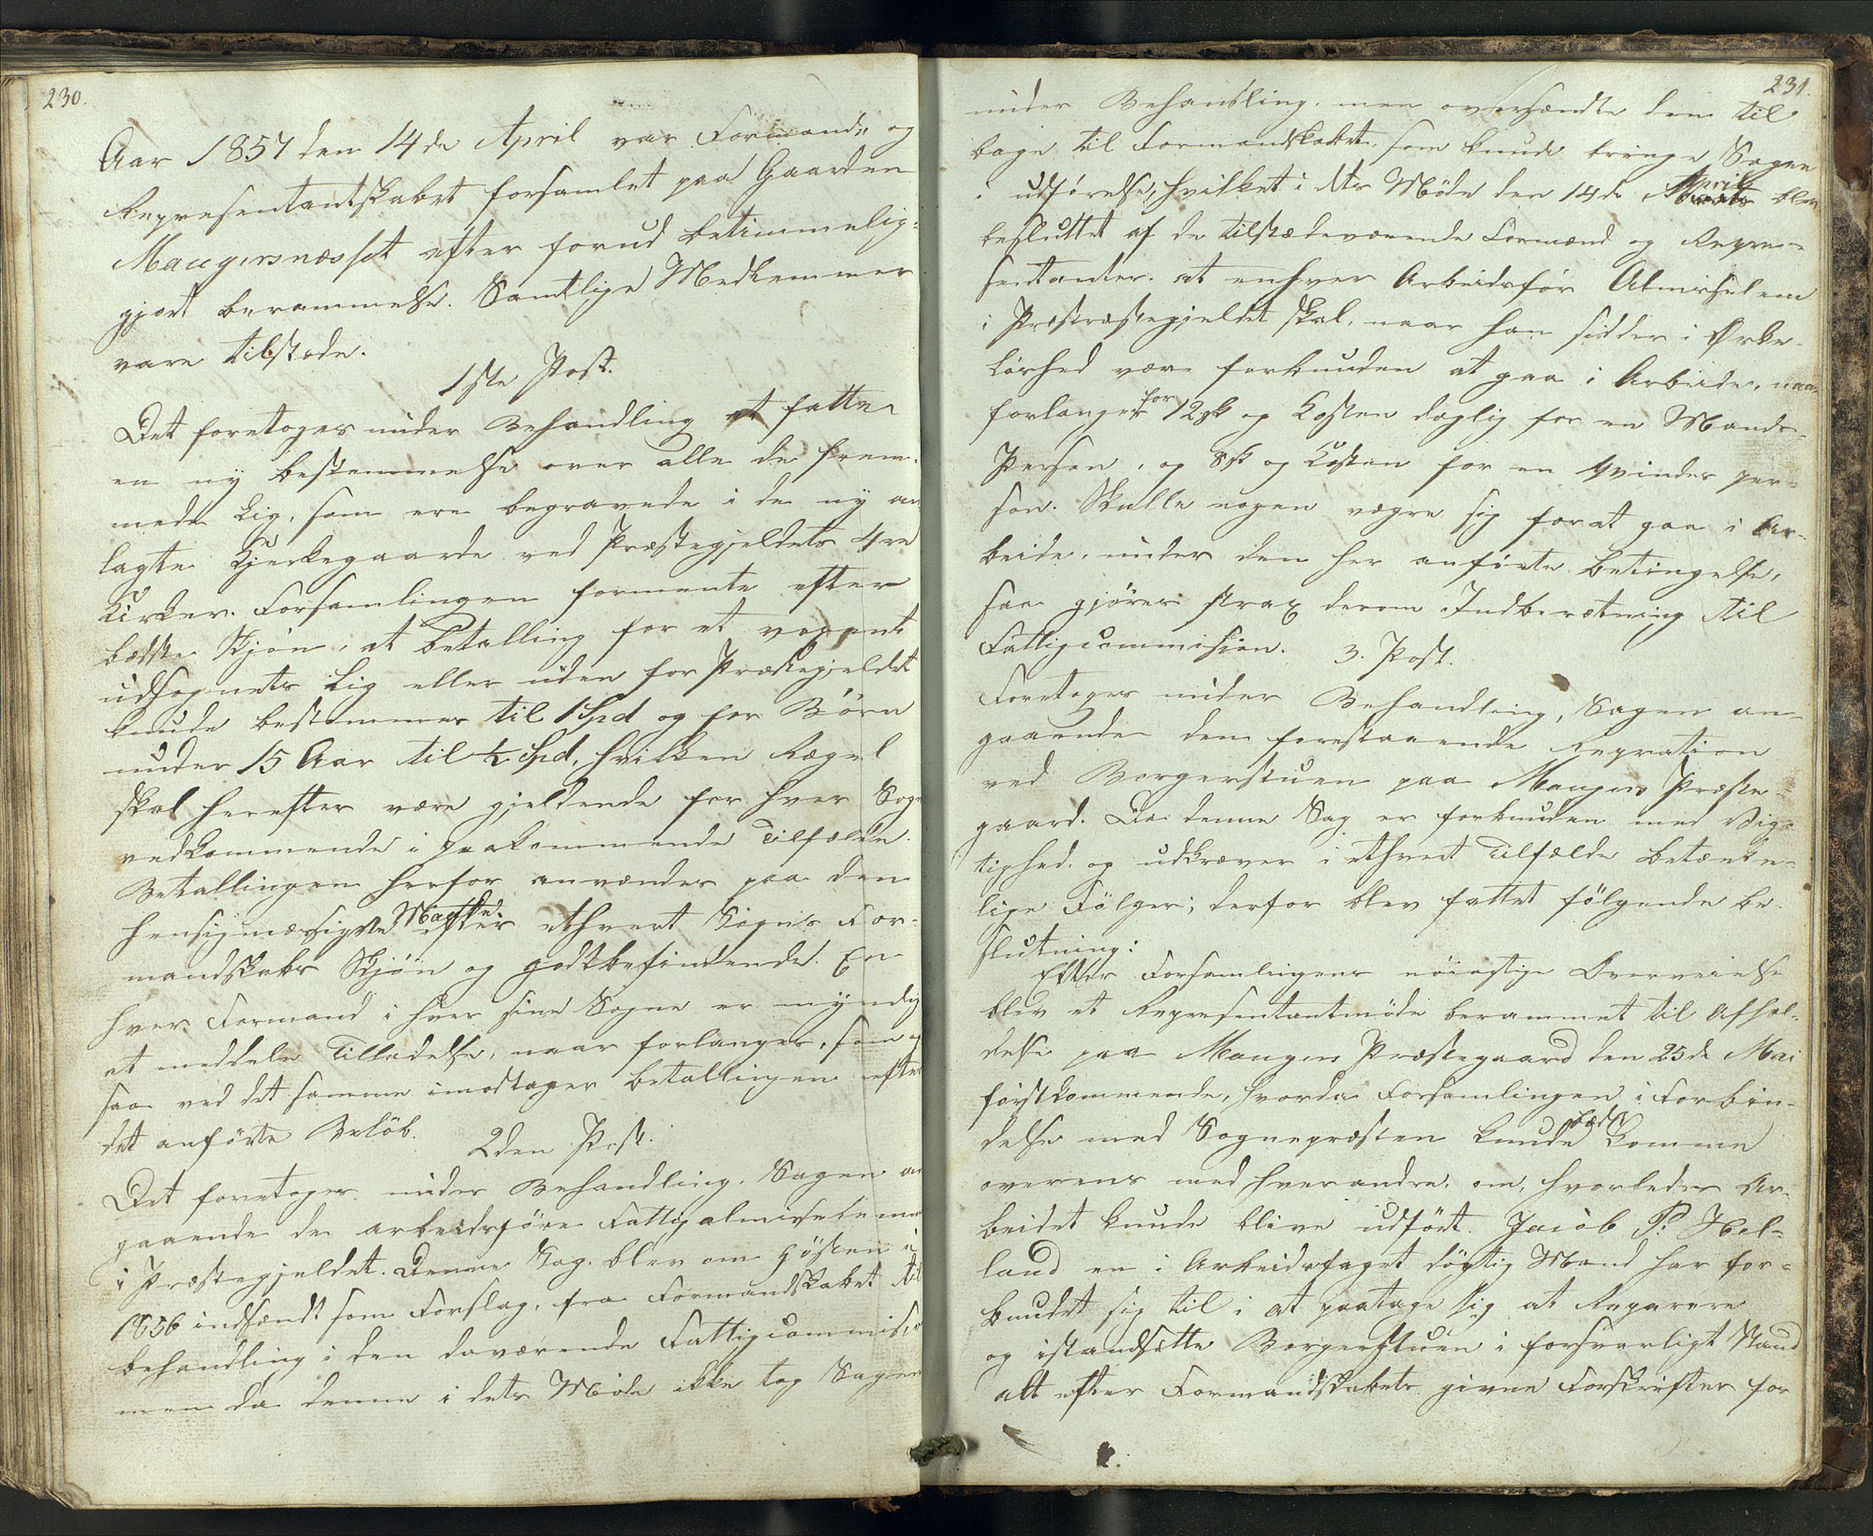 230.
Aar 1857 den 14de April var Formands og
Representantskabet forsamlet paa Gaarden
Maugersnæsset efter forud betimmelig-
gjort berammelse. Samtlige Medlemmer
vare tilstede.
1ste Post.
Det foretoges under Behandling at fatte
en ny bestemmelse over alle de frem-
mede Lig, som ere begravede i de ny an
lagte Kjerkegaarde ved Præstegjeldets 4re
Kirker. Forsamlingen formente efter
bedste Skjøn, at betalling for et voxent
udsognets Lig eller uden for Præstegjeldet
kunde bestemmes til 1 Spd og for Børn
under 15 Aar til ½ Spd, hvilken Regel
skal herefter være gjeldende for hver Sogn
vedkommende i paakommende Tilfælde.
Betallingen herfor anvendes paa den
hensigmæsigste Maade efter ethvert Sogns For-
mandskabs Skjøn og godtbefindende. En
hver Formand i hver sine Sogne er myndig
at meddele Tilladelse, naar forlanges, som og
saa ved det samme imodtager betallingen efter
det anførte Beløb.
2den Post.
Det foretoges under Behandling, Sagen an
gaaende de arbeidsføre Fattigalmisselemmer
i Præstegjeldet. Denne Sag blev om Høsten i
1856 indsendt som Forslag, fra Formandskabet til
behandling i den daværende Fattigcommision
men da denne i dets Møde ikke tog Sagen
231.
under Behandling, men oversendte den til
bage til Formandskabet, som kunde bringe Sagen
i udførelse, hvilket i dets Møde den 14de April blev
besluttet af de tilstedeværende Formænd og Repre-
sentanter, at enhver Arbeidsfør Almisselem
i Præstegjeldet skal, naar han sidder i Ørke-
løshed være forbunden at gaa i Arbeide, naar
forlanges for 12 sk og Kosten daglig for en Mands-
Person, og 8 sk og Kosten for en Qvindes per-
son. Skulle nogen vegre sig forat gaa i Ar-
beide, under den her anførte betingelse,
saa gjøres strax derom Indberetning til
Fattigcommision.
3. Post.
Foretoges under Behandling, Sagen an-
gaaende den forestaaende Repration
ved Borgerstuen paa Maugers Præste-
gaard. Da denne Sag er forbunden med Vig-
tighed, og udkræver i ethvert Tilfælde betænke-
lige Følger; derfor blev fattet følgende be-
slutning:
Efter Forsamlingens nøiagtige Overveielse
blev et Representantmøde berammet til Afhol-
delse paa Maugers Præstegaard den 25de Mai
førstkommende, hvorda Forsamlingen i Forbin-
delse med Sognepræsten kunde bedst komme
overens med hverandre, om, hvorledes Ar-
beidet kunde blive udført. Jacob P: Hol-
land en i Arbeidsfaget døgtig Mand har for-
bundet sig til i at paatage sig at Reparere
og istandsette Borgerstuen i forsvarligt Stand
alt efter Formandskabets givne Forskrifter for